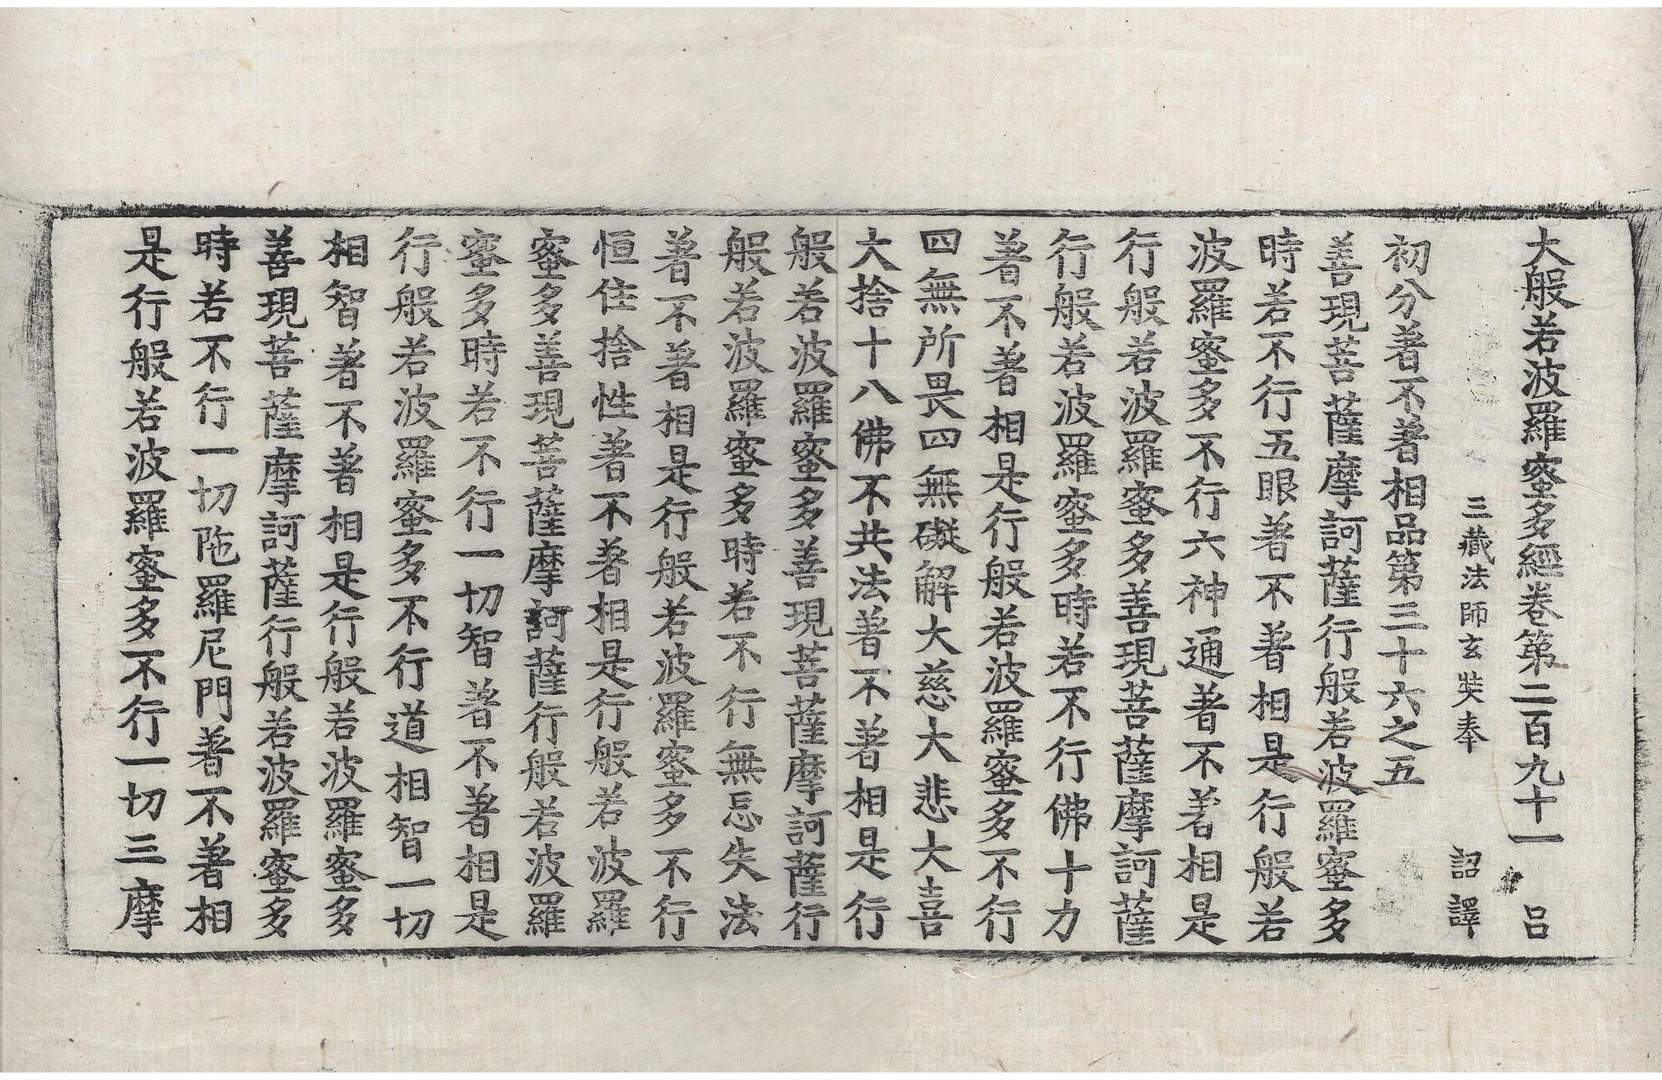 大般若波羅蜜多經卷第二百九十一 呂
三藏法師玄奘奉 詔譯
初分著不著相品第三十六之五
善現菩薩摩訶薩行般若波羅蜜多
時若不行五眼著不著相是行般若
波羅蜜多不行六神通著不著相是
行般若波羅蜜多善現菩薩摩訶薩
行般若波羅蜜多時若不行佛十力
著不著相是行般若波羅蜜多不行
四無所畏四無礙解大慈大悲大喜
大捨十八佛不共法著不著相是行
般若波羅蜜多善現菩薩摩訶薩行
般若波羅蜜多時若不行無忘失法
著不著相是行般若波羅蜜多不行
恒住捨性著不著相是行般若波羅
蜜多善現菩薩摩訶薩行般若波羅
蜜多時若不行一切智著不著相是
行般若波羅蜜多不行道相智一切
相智著不著相是行般若波羅蜜多
善現菩薩摩訶薩行般若波羅蜜多
時若不行一切陁羅尼門著不著相
是行般若波羅蜜多不行一切三摩